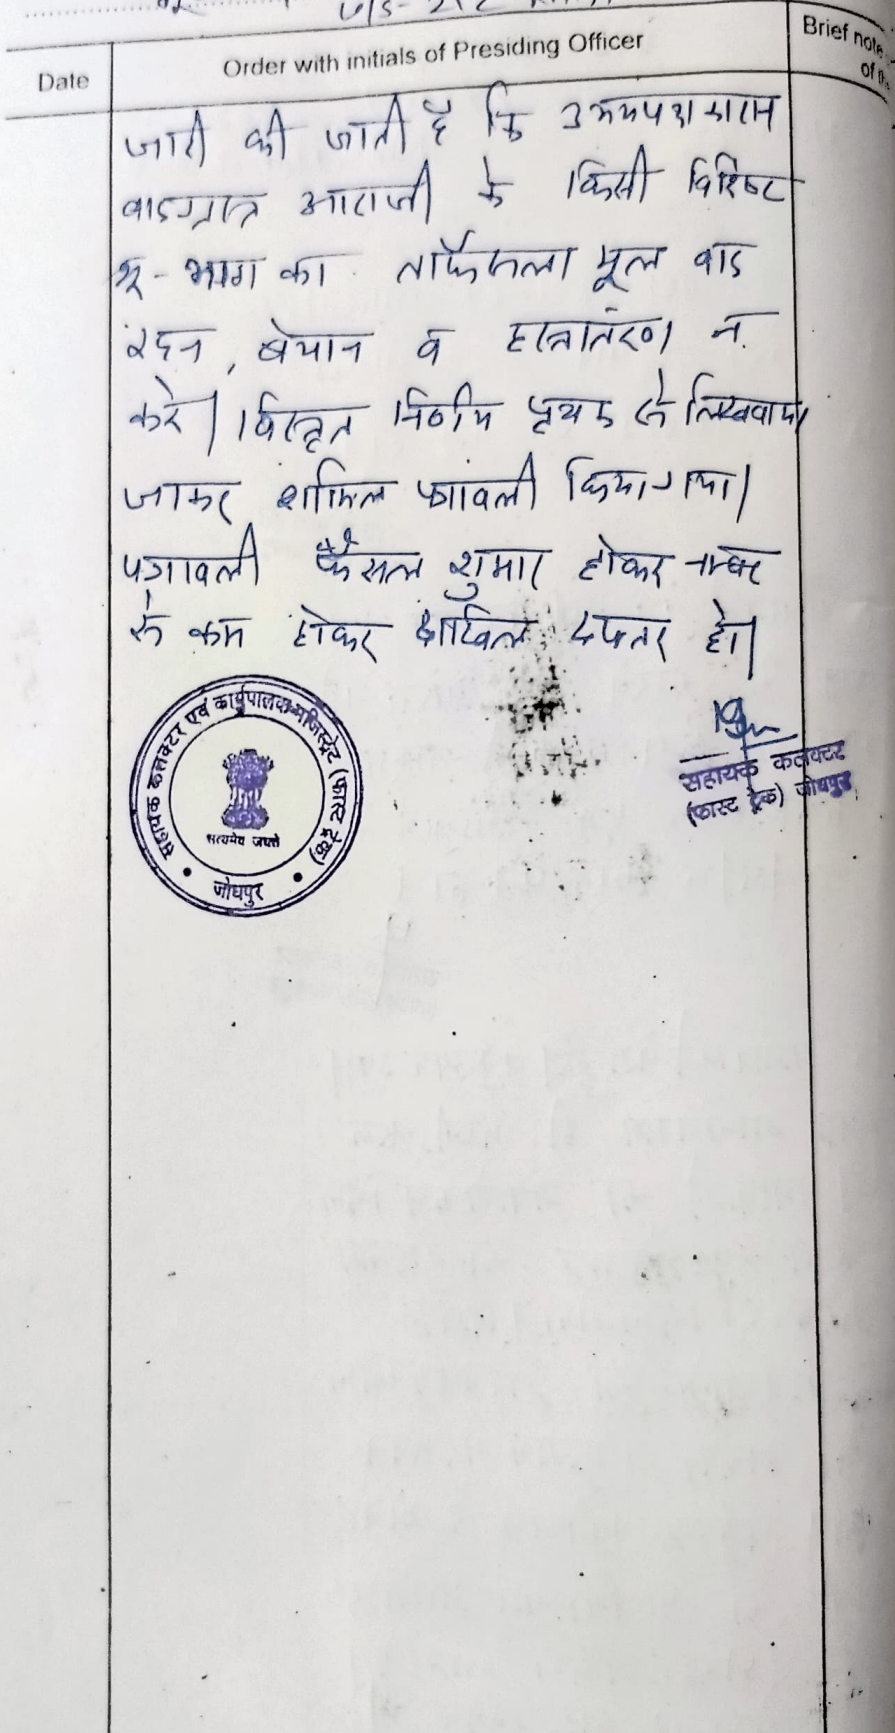 U/S-212
Date
Order with initials of Presiding Officer
Brief note
of
जारी की जाती है कि उभयपक्षकारान
वादग्रस्त आराजी के किसी विशिष्ट
भू-भाग का ताफैसला मूल वाद
रहन, बेचान व हस्तांतरण न
करे। विस्तृत निर्णय पृथक से लिखवाया
जाकर शामिल पत्रावली किया गया।
पत्रावली फैसल शुमार होकर नम्बर
से कम होकर दाखिल दफ्तर हो।
सहायक कलक्टर एवं कार्यपालक मजिस्ट्रेट (फास्ट ट्रेक)
सत्यमेव जयते
जोधपुर
सहायक कलक्टर
(फास्ट ट्रेक) जोधपुर